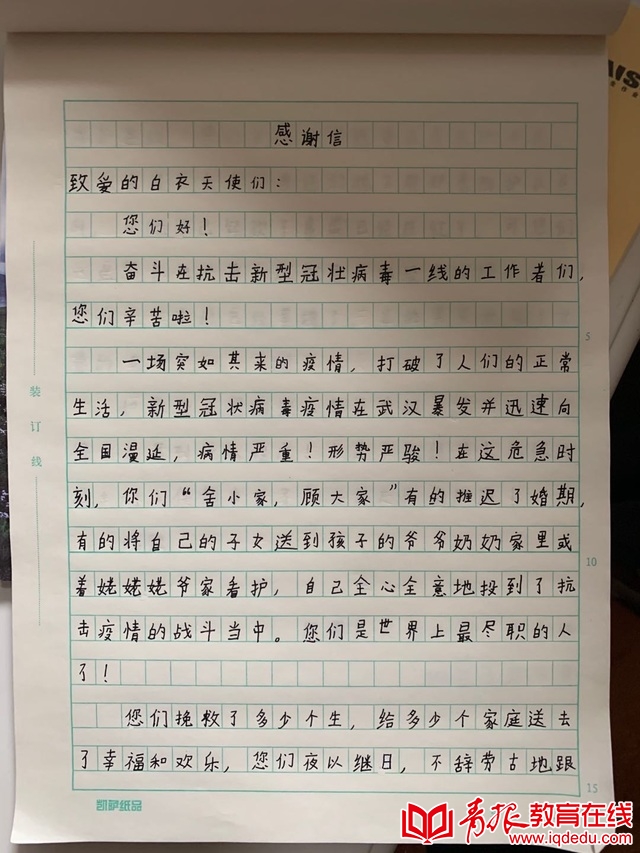 感谢信
致爱的白衣天使们：
您们好！
奋斗在抗击新型冠状病毒一线的工作者们，
您们辛苦啦！
一场突如其来的疫情，打破了人们的正常
生活，新型冠状病毒疫情在武汉暴发并迅速向
全国漫延，病情严重！形势严骏！在这危急时
刻，你们“舍小家，顾大家”有的推迟了婚期，
有的将自己的子女送到孩子的爷爷奶奶家里或
着姥姥姥爷家看护，自己全心全意地投到了抗
击疫情的战斗当中。您们是世界上最尽职的人
了！
您们挽救了多少个生，给多少个家庭送去
了幸福和欢乐，您们夜以继日，不辞劳古地跟
装订线
5
10
15
凯萨纸品
青报教育在线
www.iqdedu.com